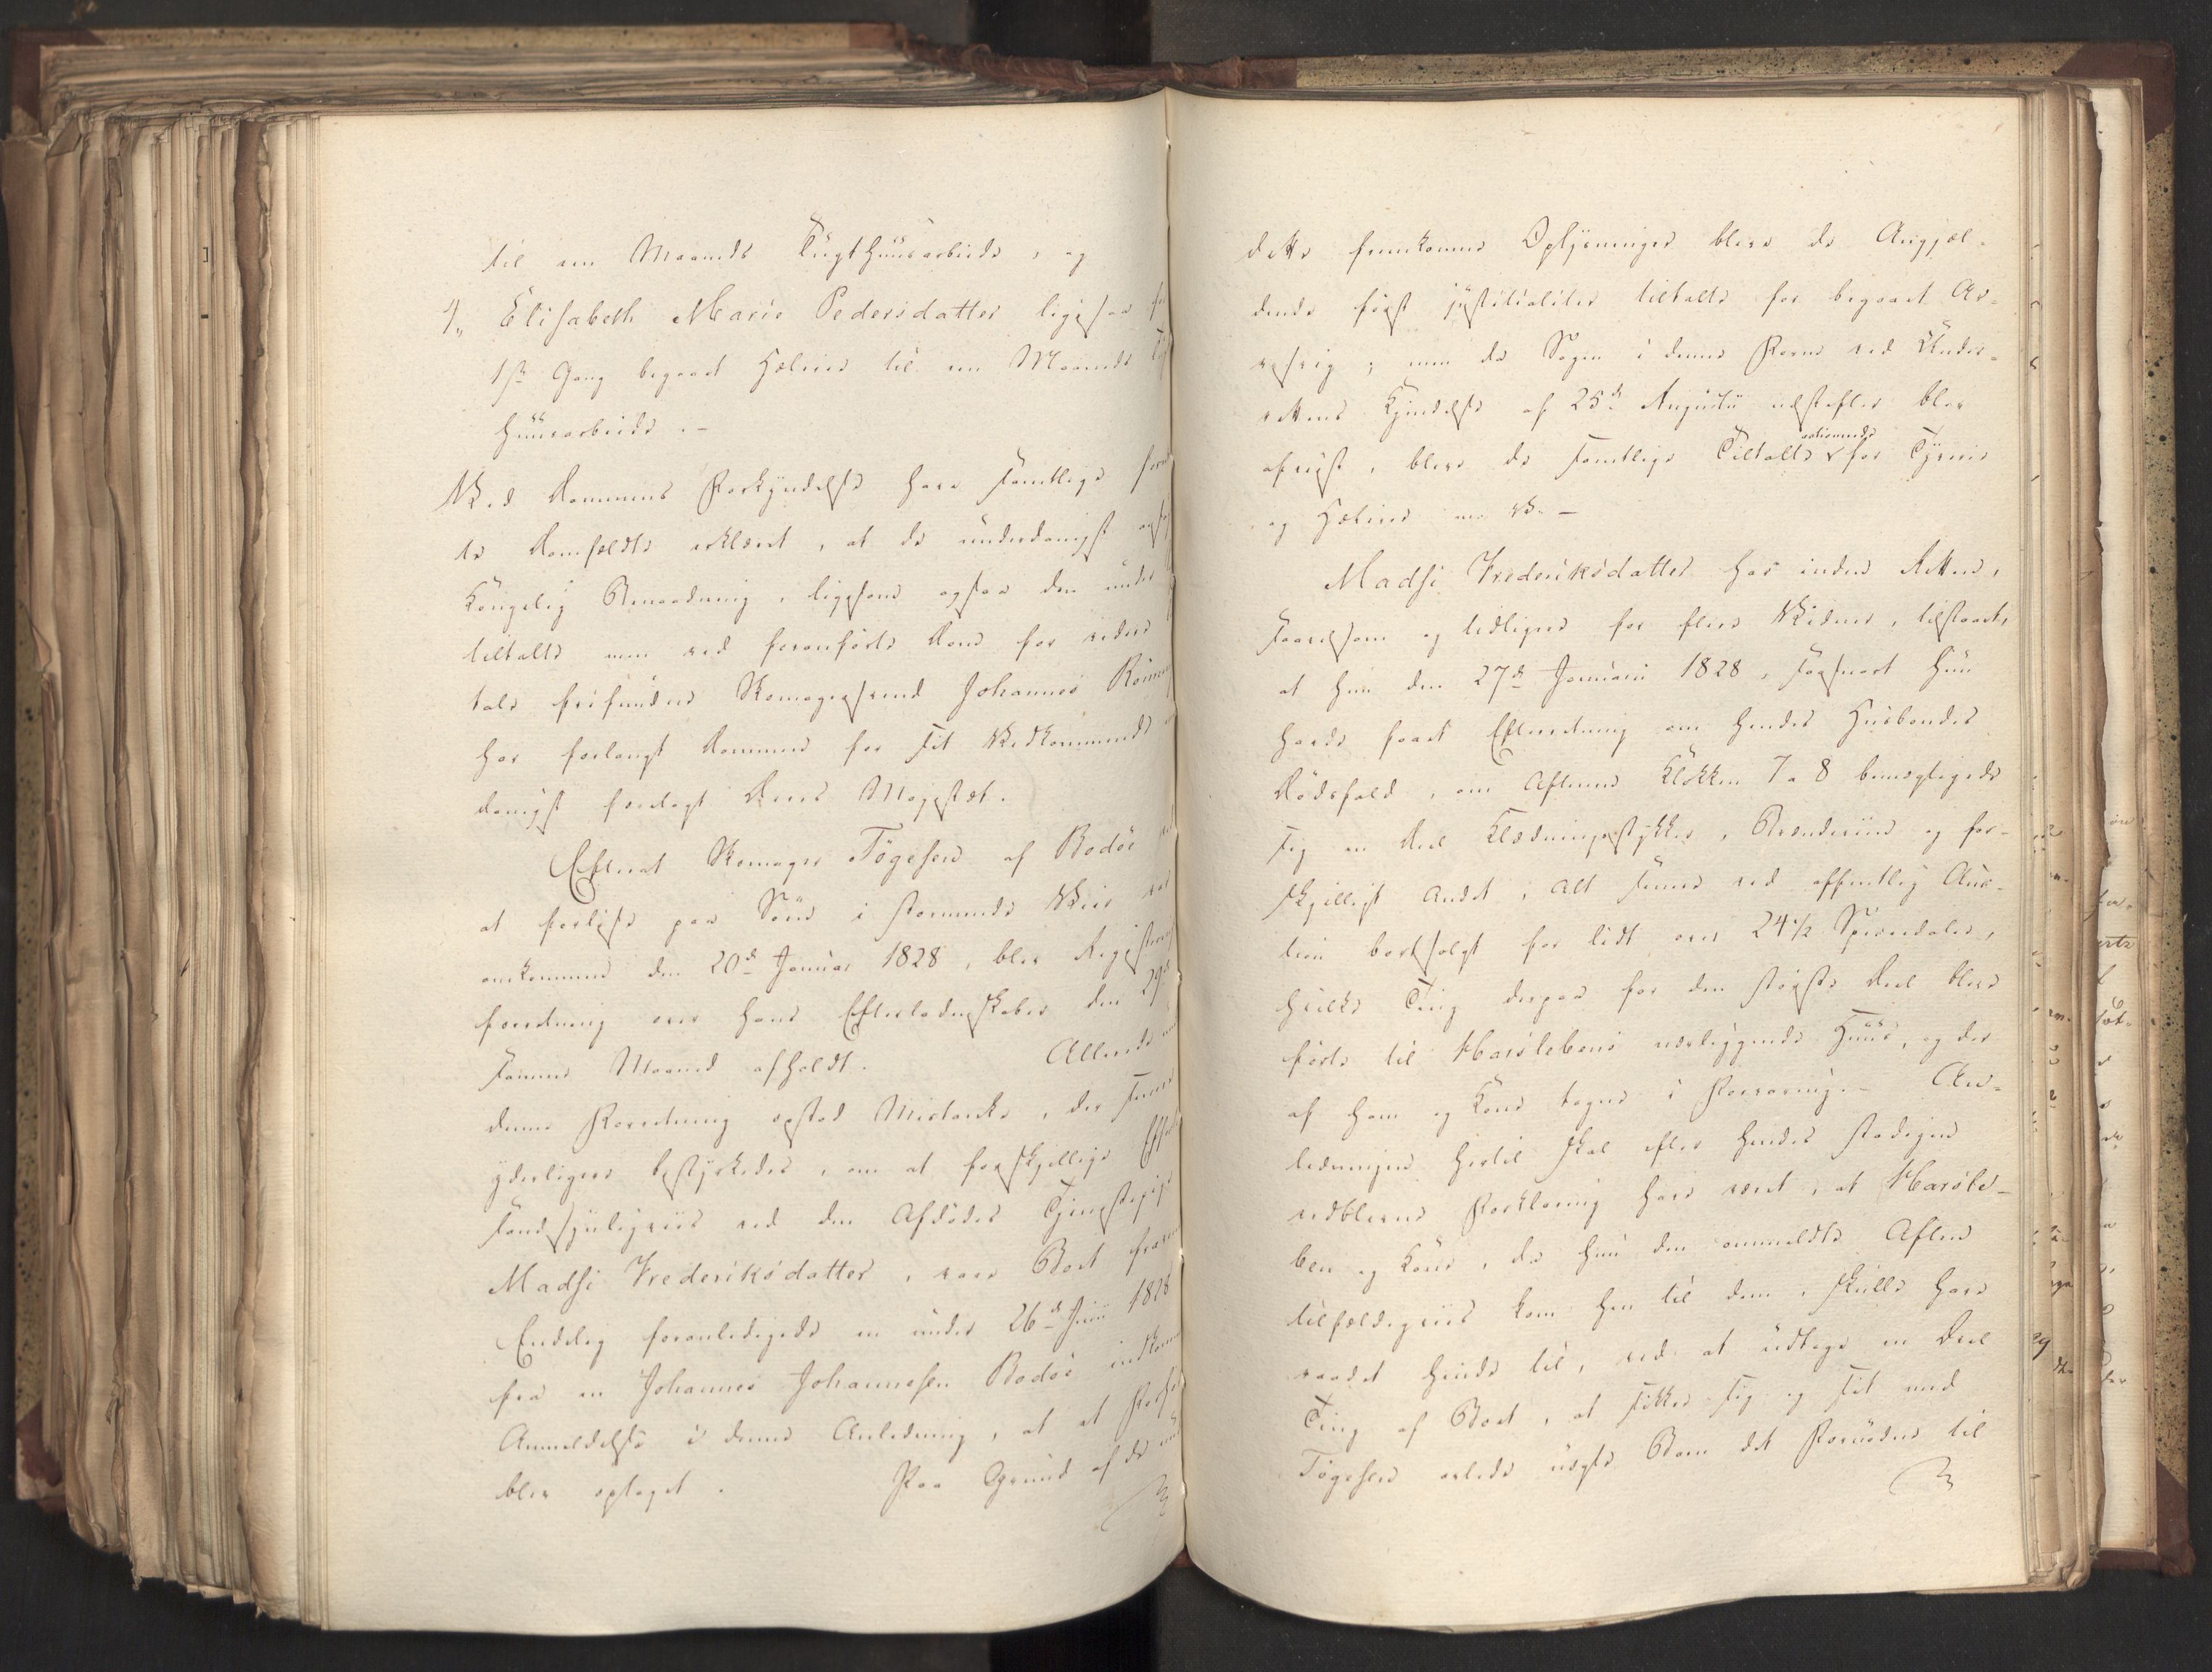 til een Maaneds Tugthuusarbeide, og
4, Elisabeth Marie Pedersdatter ligesaa for
1ste Gang begaaet Hæleri til een Maaneds
huusarbeide. -
Ved Dommens Forkyndelse have samtlige
te Domfældte erklæret, at de underdanigst
Kongelig Benaadning, ligesom ogsaa den under
tiltalte men ved foranførte Dom for videre
tale frifundne Skomagersvend Johannes
har forlangt Dommen for sit Vedkommende
danigst foredragt Deres Majestæt.
Efterat Skomager Tøgesen af Bodøe
at forliise paa Søen i stormende Veir var
omkommen den 20de Januar 1828, blev Registrerings
forretning over hans Efterladenskaber den 29de
samme Maaned afholdt. Allerede
denne Forretning opstod Mistanke, der senere
yderligere bestyrkedes, om at forskjellige
sandsynligviis ved den Afdødes Tjenestepige
Madsi Frederiksdatter, vare Boet
Endelig foranledigede en under 26de Juni 1828
fra en Johannes Johannesen Bodøe indkommen
Anmeldelse i denne Anledning, at et
blev optaget. Paa Grund af de
dette fremkomne Oplysninger bleve de Angjæl-
dende først justitialiter tiltalte for begaaet Ar-
vesvig; men da Sagen i denne Form ved Under-
rettens Kjendelse af 25de Augusti næstefter blev
afviist, bleve de samtlige Tiltalte actionerede for Tyverie
og Hælerie m. V. -
Madsi Frederiksdatter har inden Retten,
saavelsom og tidligere for flere Vidner, tilstaaet,
at hun den 27de Januarii 1828, saasnart hun
havde faaet Efterretning om hendes Huusbondes
Dødsfald, om Aftenen Klokken 7 a 8 bemægtigede
sig en Deel Klædningsstykker, Brændeviin og for-
skjelligt Andet, Alt senere ved offentlig Auc-
tion bortsolgt for lidt over 24 1/2 Speciedaler,
hvilke Ting derpaa for den største Deel bleve
førte til Harsleben's nærliggende Huus, og der
af ham og Kone tagne i Forvaring. - An-
ledningen hertil skal efter hendes stadigen
vedblevne Forklaring have været, at Harsle-
ben og Kone, da hun den ommeldte Aften
tilfældigviis kom hen til dem, skulle have
raadet hende til, ved at udtage en Deel
Ting af Boet, at sikkre sig og sit med
Tøgesen avlede uægte Barn det Fornødne til